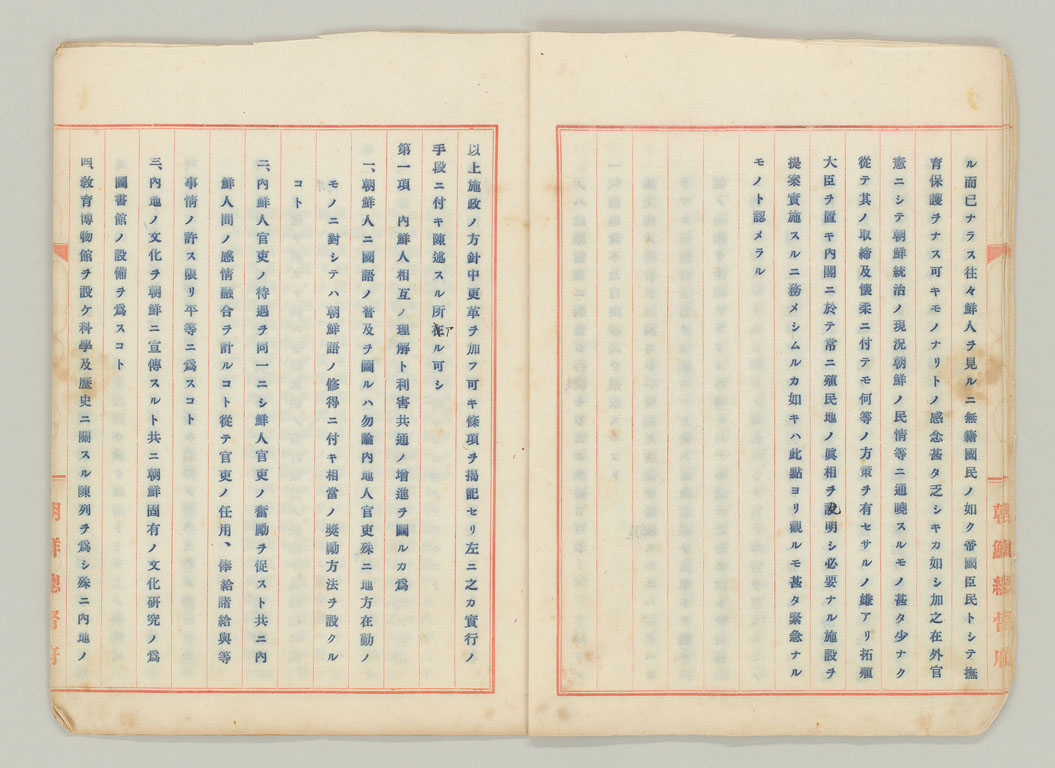 ル而已ナラス往々鮮人ヲ見ルニ無籍國民ノ如ク帝國臣民トシテ撫
育保護ヲナス可キモノナリトノ感念甚タ乏シキカ如シ加之在外官
憲ニシテ朝鮮統治ノ現況朝鮮ノ民情等ニ通曉スルモノ甚タ少ナク
從テ其ノ取締及懷柔ニ付テモ何等ノ方策ヲ有セサルノ嫌アリ拓殖
大臣ヲ置キ內閣ニ於テ常ニ殖民地ノ眞相ヲ說明シ必要ナル施設ヲ
提案實施スルニ務メシムルカ如キハ此點ヨリ觀ルモ甚タ緊急ナル
モノト認メラル
朝鮮總督府
以上施政ノ方針中更革ヲ加フ可キ條項ヲ揭記セリ左ニ之カ實行ノ
手段ニ付キ陳述スル所アル可シ
第一項 內鮮人相互ノ理解ト利害共通ノ增進ヲ圖ルカ爲
一、朝鮮人ニ國語ノ普及ヲ圖ルハ勿論內地人官吏殊ニ地方在勤ノ
モノニ對シテハ朝鮮語ノ修得ニ付キ相當ノ奬勵方法ヲ設クル
コト
二、內鮮人官吏ノ待遇ヲ同一ニシ鮮人官吏ノ奮勵ヲ促スト共ニ內
鮮人間ノ感情融合ヲ計ルコト從テ官吏ノ任用、俸給諸給與等
事情ノ許ス限リ平等ニ爲スコト
三、內地ノ文化ヲ朝鮮ニ宣傳スルト共ニ朝鮮固有ノ文化硏究ノ爲
圖書館ノ設備ヲ爲スコト
四、敎育博物館ヲ設ケ科學及歷史ニ關スル陳列ヲ爲シ殊ニ內地ノ
朝鮮總督府